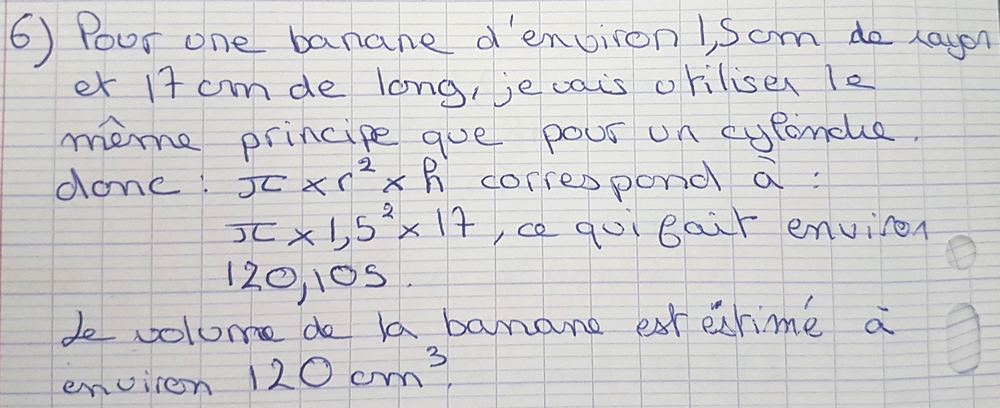 6) Pour une banane d'environ 1,5cm de rayon
et 17 cm de long, je vais utiliser le
même principe que pour un cylindre.
donc : π × r² × h correspond à :
π × 1,5² × 17, ce qui fait environ
120,105.
Le volume de la banane est estimé à
environ 120 cm³.